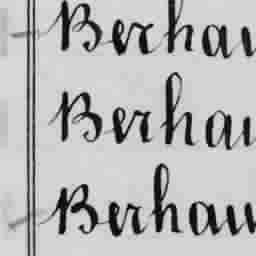 Berhau
Berhau
Berhau